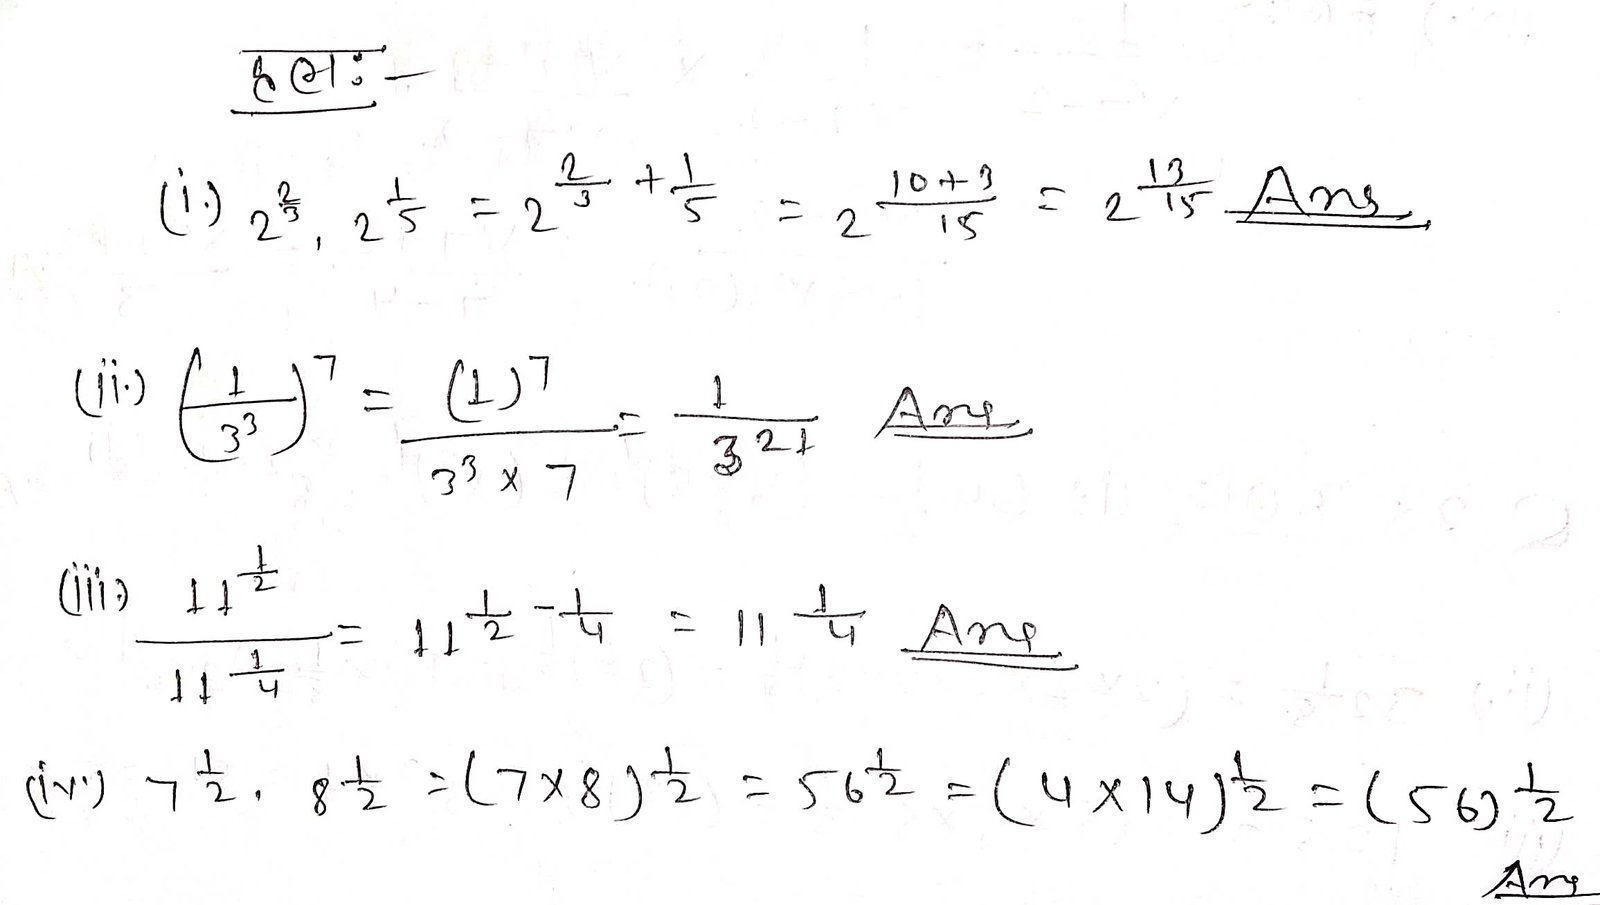 हल :-
(i.) 2^(2/3) . 2^(1/5) = 2^(2/3 + 1/5) = 2^((10+3)/15) = 2^(13/15) Ans
(ii.) (1/3^3)^7 = (1)^7/(3^3 x 7) = 1/3^21 Ans
(iii) 11^(1/2)/11^(1/4) = 11^(1/2 - 1/4) = 11^(1/4) Ans
(iv) 7^(1/2) . 8^(1/2) = (7x8)^(1/2) = 56^(1/2) = (4x14)^(1/2) = (56)^(1/2)
Ans